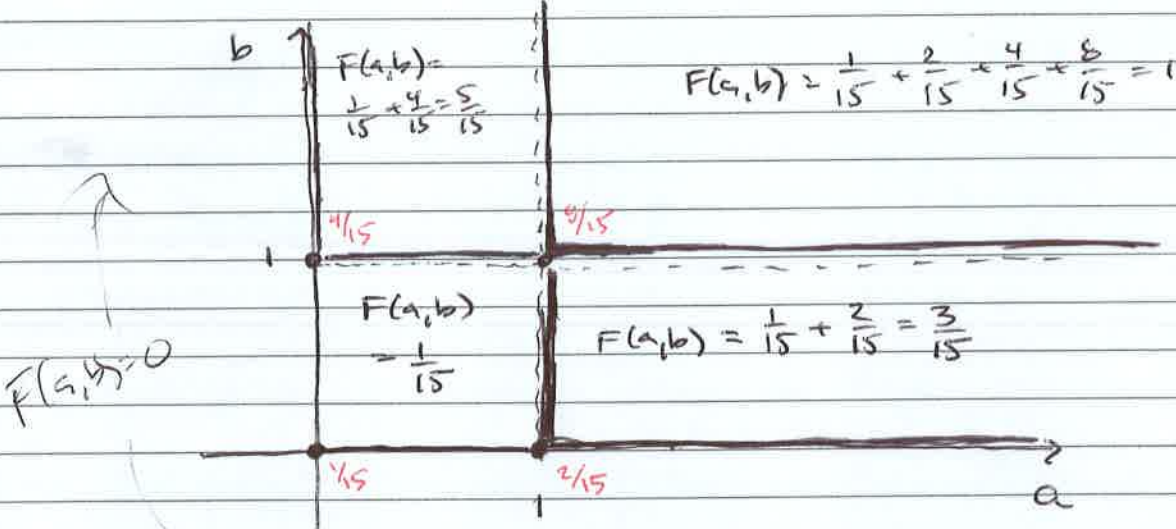 b
F(a,b) =
1/15 + 4/15 = 5/15
F(a,b) = 1/15 + 2/15 + 4/15 + 8/15 = 1
4/15
8/15
1
F(a,b)
= 1/15
F(a,b) = 1/15 + 2/15 = 3/15
F(a,b)=0
1/15
2/15
1
a